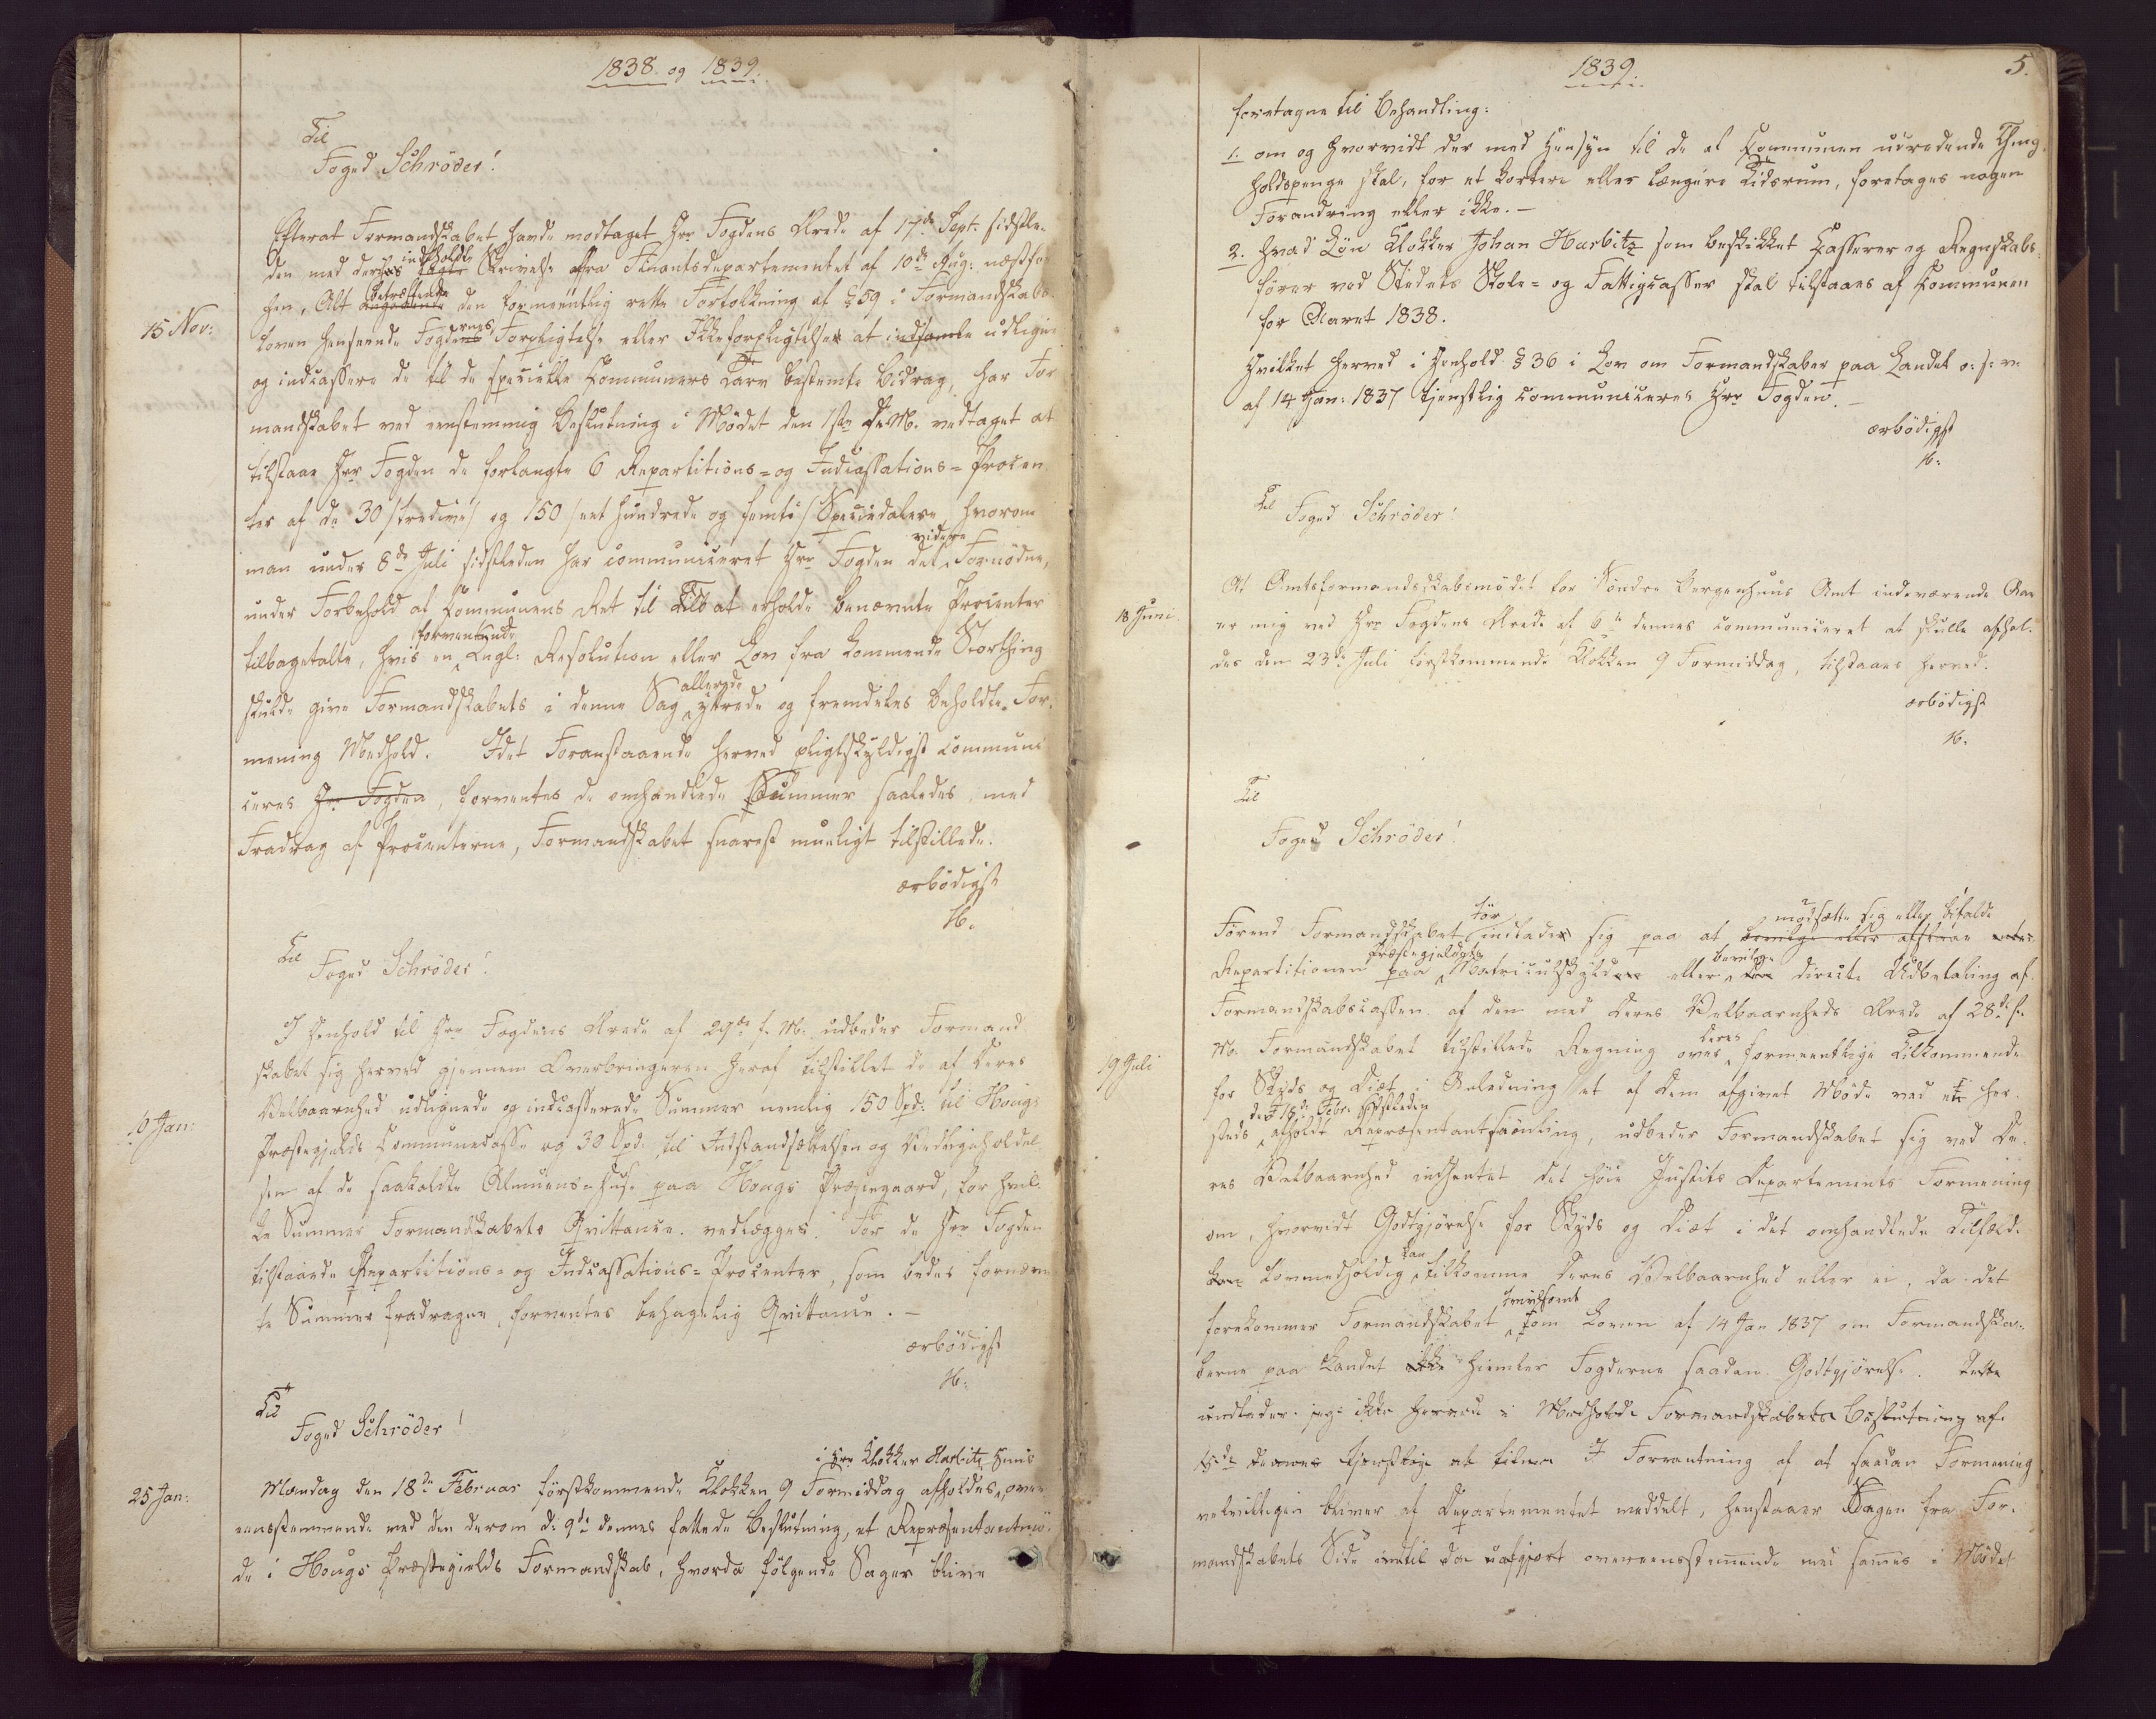 1838 og 1839.
Til
Foged Schröder!
15 Nov:
Efterat Formandskabet havde modtaget Hrr Fogdens Brede af 17de Sept. sidstle-
den med dertil indholdte Skrivelse fra Finantsdepartementet af 10de Aug: næstfor
hen, Alt betræffende den formeentlig rette Fortolkning af § 59 i Formandskabs-
loven henseende Fogdernes Forpligtelse eller Ikkeforpligtelse at indsamle udligne
og indcassere de til de specielle Communers Tarv bestemte Bidrag, har For
mandskabet ved eenstemmig Beslutning i Mödet den 1ste d. M. vedtaget at
tilstaae Hrr Fogden de forlangte 6 Repartitions- og Indcassations-Procen
ter af de 30 /tredive/ og 150 /eet hundrede og femti/ Speciedalere, hvorom
man under 8de Juli sidstleden har communiceret Hrr Fogden det videre Fornödne,
under Forbehold af Communens Ret til at erholde benævnte Procenter
tilbagetalte, hvis en forventende Kngl: Resolution eller Lov fra kommende Storthing
skulde give Formandskabets i denne Sag allerede yttrede og fremdeles beholdte For-
mening Medhold. Idet Foranstaaende herved pligtskyldigst communi
ceres Hr. Fogden, forventes de omhandlede Summer saaledes, med
Fradrag af Procenterne, Formandskabet snarest mueligt tilstillede.
ærbödigst
H.
Til
Foged Schröder!
10 Jan:
I Henhold til Hrr Fogdens Brede af 29de f. M. udbeder Formand
skabet sig herved gjennem Overbringeren heraf tilstillet de af Deres
Velbaarenhed udlignede og indcasserede Summer nemlig 150 Spd: til Hougs
Præstegjelds Communecasse og 30 Spd. til Istandsættelsen og Vedligeholdel
sen af de saakaldte Almuens-Huse paa Hougs Præstegaard, for hvil
ke Summer Formandskabets Qvittance vedlægges. For de Hrr Fogden
tilstaaede Repartitions- og Indcassations-Procenter, som bedes fornævn
te Summer fradragne, forventes behagelig Qvittance. —
ærbödigst
H.
Til
Foged Schröder!
25 Jan:
i Hrr Klokker Harbitz Huus
Mandag den 18de Februar förstkommende Klokken 9 Formiddag afholdes, over
eensstemmende med den derom d. 9de dennes fattede Beslutning, et Repræsentantmö
de i Hougs Præstegjelds Formandskab, hvorda fölgende Sager blive
1839.
5.
foretagne til Behandling:
1. om og hvorvidt der med Hensyn til de af Communen udredende Thing
holdspenge skal, for et kortere eller længere Tidsrum, foretages nogen
Forandring eller ikke. —
2. Hvad Lön Klokker Johan Harbitz som beskikket Casserer og Regnskabs-
förer ved Stedets Skole- og Fattigcasser skal tilstaaes af Communen
for Aaret 1838.
Hvilket herved i Henhold § 36 i Lov om Formandskaber paa Landet o: s: v:
af 14 Jan: 1837 tjenstlig communiceres Hrr Fogden. —
ærbödigst
H.
Til Foged Schröder!
18 Juni
At Amtsformandsskabsmödet for Söndre Bergenhuus Amt indeværende Aar
er mig ved Hrr Fogdens Brede af 6te dennes communiceret at skulle afhol-
des den 23de Juli förstkommende Klokken 9 Formiddag, tilstaaes herved.
ærbödigst
H.
Til
Foged Schröder!
19 Juli
Förend Formandskabet tör indlade sig paa at modsætte sig eller bifalde
Repartitionen paa Præstegjeldets Matriculskyld eller bevilge directe Udbetaling af
Formandskabscassen af den med Deres Velbaarenheds Brede af 28de f.
M. Formandskabet tilstillede Regning over Deres formeentlige Tilkommende
for Skyds og Diæt i Anledning et af Dem afgivet Möde ved et her-
steds d. 18de Febr. sidstleden afholdt Repræsentantsamling, udbeder Formandskabet sig ved De-
res Velbaarenhed indhentet det höie Justits Departements Formening
om, hvorvidt Godtgjörelse for Skyds og Diæt i det omhandlede Tilfælde
lovmedholdig kan tilkomme Deres Velbaarenhed eller ei, da det
forekommer Formandskabet tvivlsomt som Loven af 14 Jan 1837 om Formandska-
berne paa Landet hjemler Fogderne saadan Godtgjörelse. Dette
undlader jeg ikke herved i Medhold Formandskabets Beslutning af
dennes tjenstlig at tilmelde I Forventning af at saadan Formening
velvilligen bliver af Departementet meddelt, henstaaer Sagen fra For-
mandskabets Side indtil da uafgjort overeensstemmende med sammes i Mödet